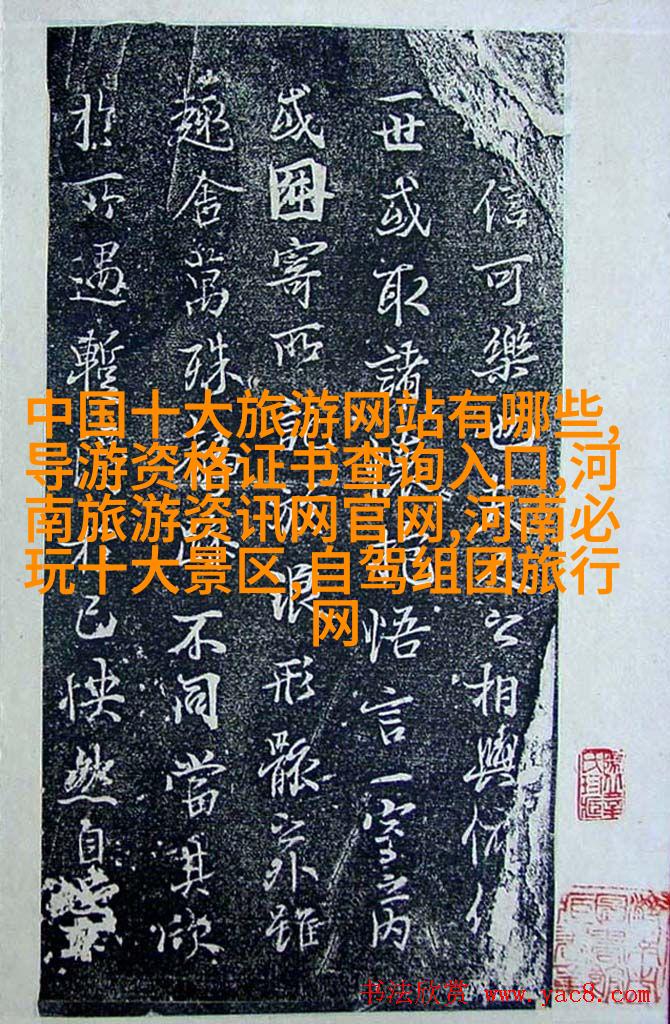 信可樂也夫人之相與俯仰
一世或取諸懷抱悟言一室之內
或因寄所託放浪形骸之外雖
趣舍萬殊靜躁不同當其欣
於所遇暫得於己快然自
中国十大旅游网站有哪些,
导游资格证书查询入口,河
南旅游资讯网官网,河南必
玩十大景区,自驾组团旅行
网
书法欣赏 www.yac8.com